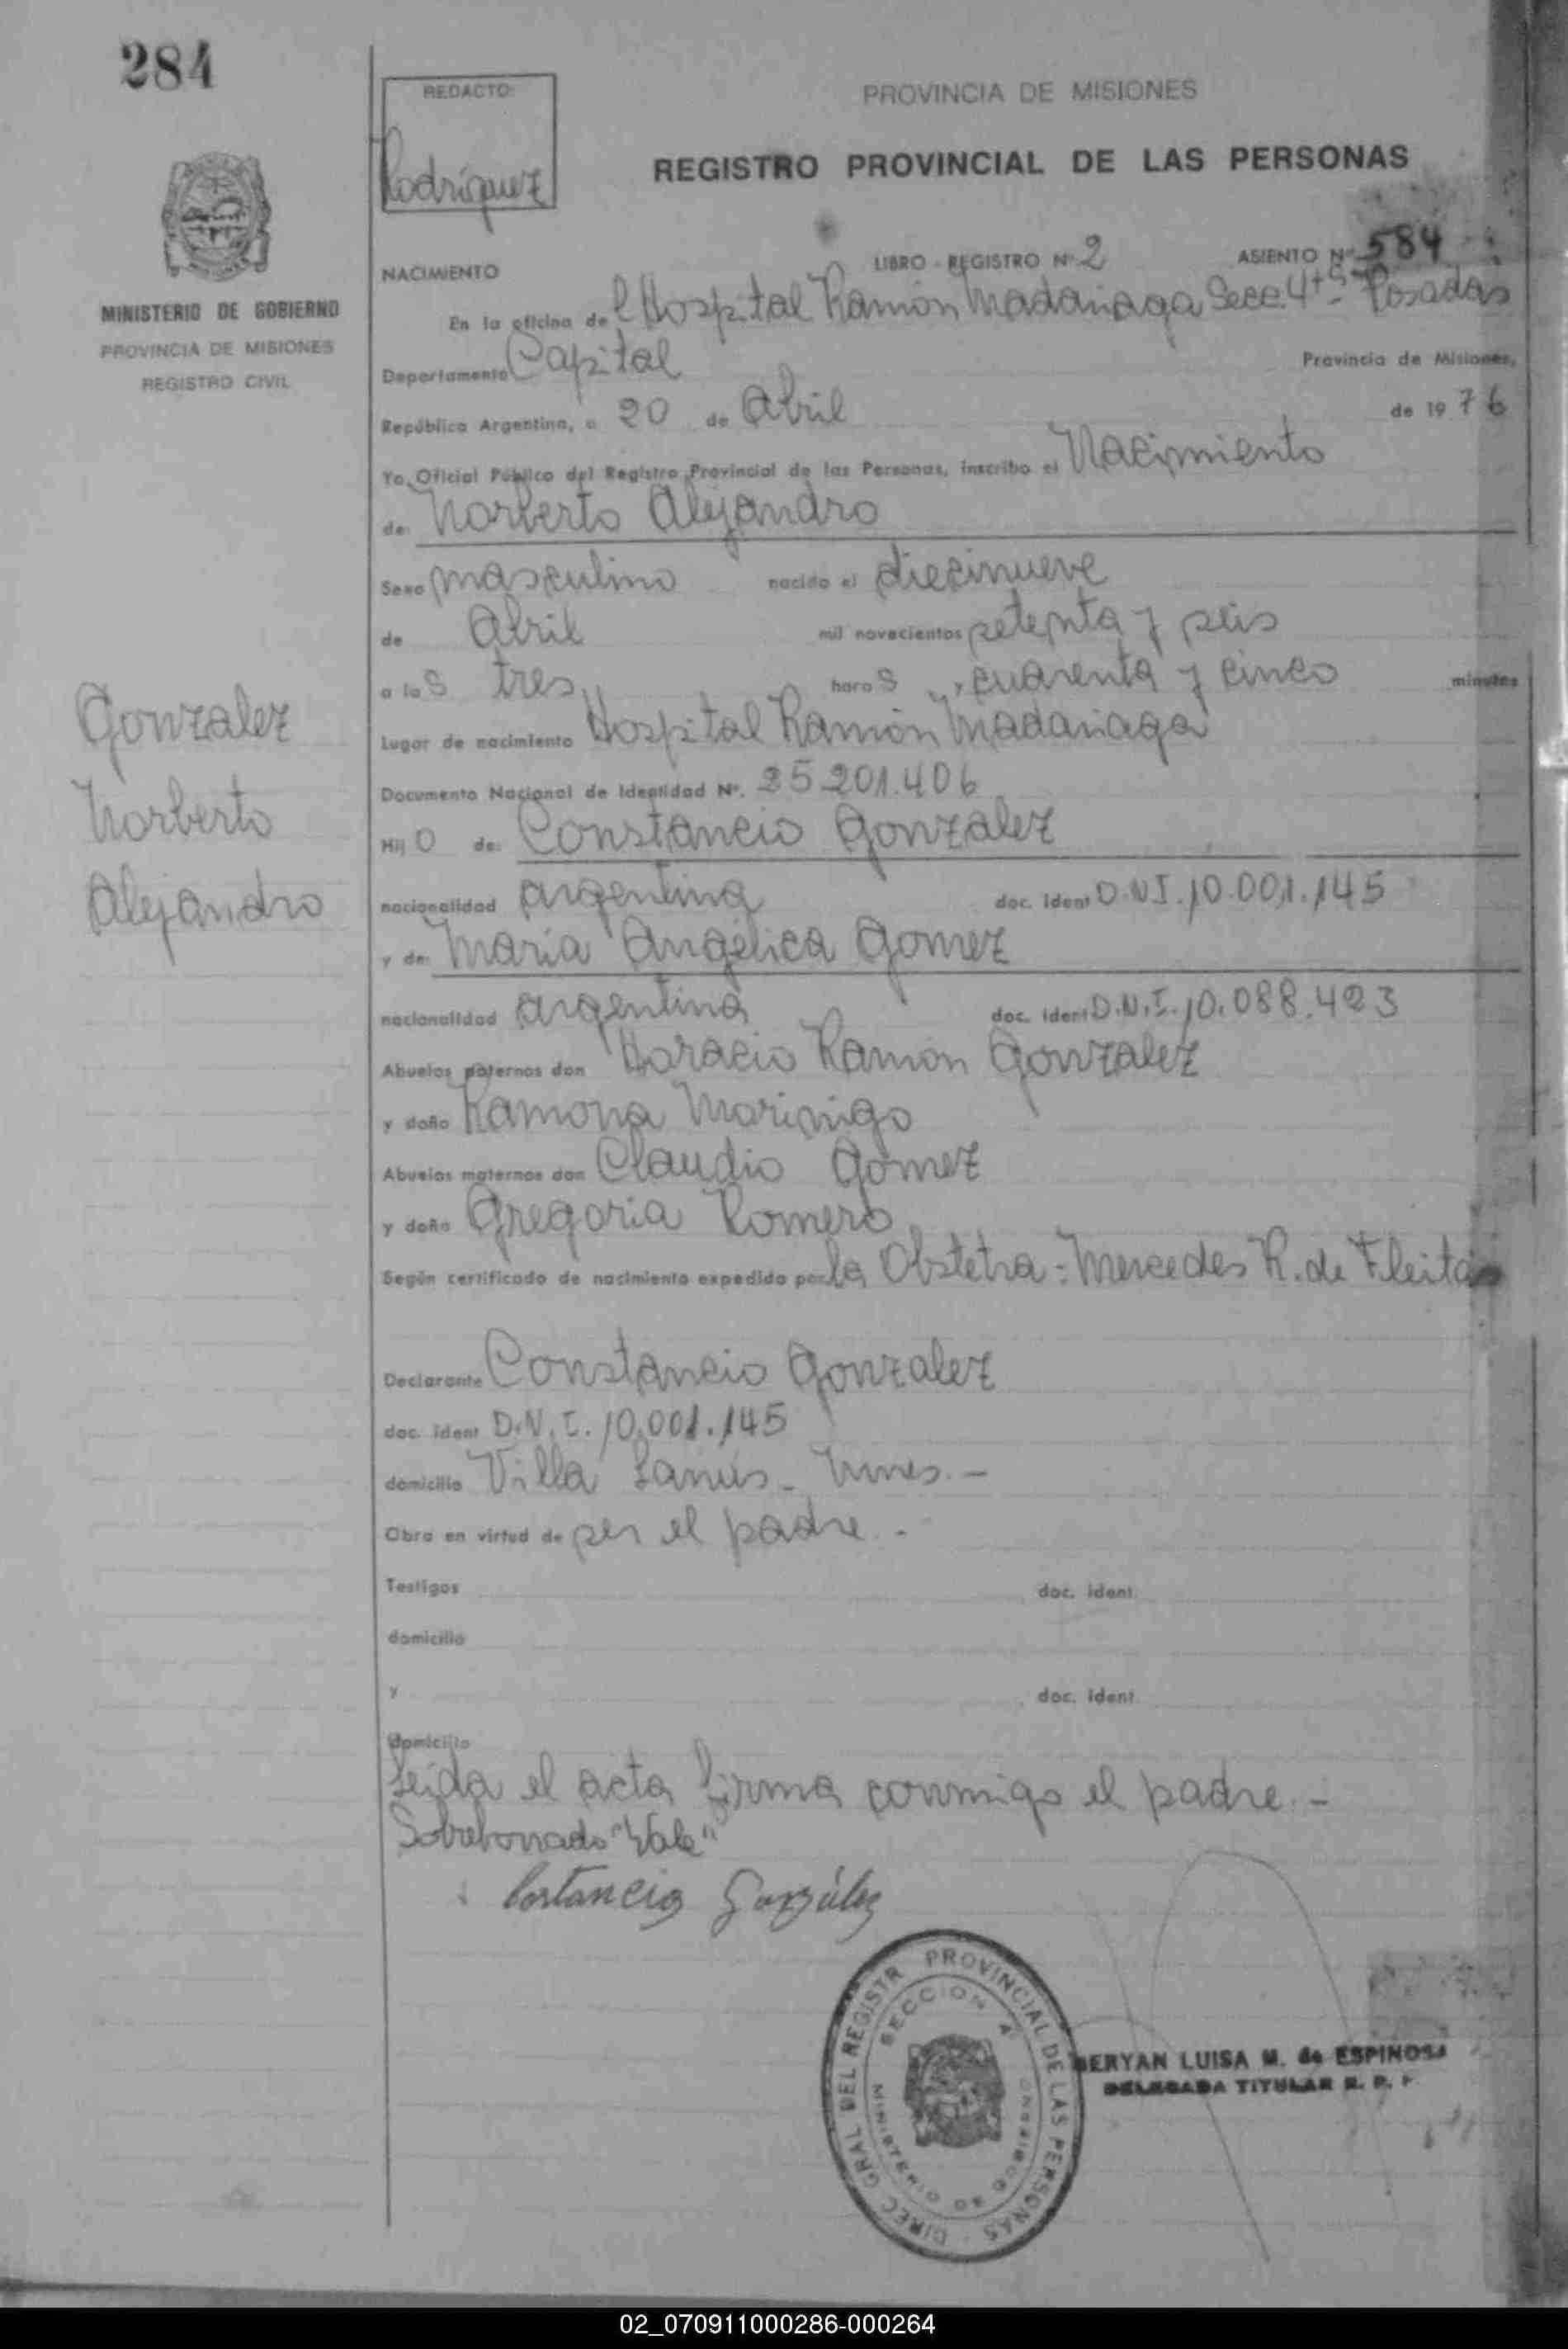 284
REDACTO:
Rodríguez
PROVINCIA DE MISIONES
REGISTRO PROVINCIAL DE LAS PERSONAS
MINISTERIO DE GOBIERNO
PROVINCIA DE MISIONES
REGISTRO CIVIL
NACIMIENTO LIBRO - REGISTRO Nº 2 ASIENTO Nº 584
En la oficina de l Hospital Ramón Madariaga Secc. 4ta - Posadas
Departamento Capital Provincia de Misiones,
República Argentina, a 20 de Abril de 19 76
Yo, Oficial Público del Registro Provincial de las Personas, inscribo el Nacimiento
de: Norberto Alejandro
Sexo masculino nacido el diecinueve
de Abril mil novecientos setenta y seis
a las tres horas, cuarenta y cinco minutos
Lugar de nacimiento Hospital Ramón Madariaga
Documento Nacional de Identidad Nº. 25.201.406
Hijo de: Constancio Gonzalez
nacionalidad argentina doc. ident D.N.I. 10.001.145
y de: María Angélica Gomez
nacionalidad argentina doc. ident D.N.I. 10.088.423
Abuelos paternos don Horacio Ramón Gonzalez
y doña Ramona Marinigo
Abuelos maternos don Claudio Gómez
y doña Gregoria Romero
Según certificado de nacimiento expedido por la Obstetra: Mercedes R. de Fleitas
Gonzalez
Norberto
Alejandro
Declarante Constancio Gonzalez
doc. ident D.N.I. 10.001.145
domicilio Villa Lanús -
Obra en virtud de ser el padre.-
Testigos doc. ident.
domicilio
y doc. ident.
domicilio
Leída el acta firma conmigo el padre.-
Sobreborrado "Vale"
Costancio González
DIREC GRAL DEL REGISTR PROVINCIAL DE LAS PERSONAS
SECCION 4ª
MINISTERIO DE GOBIERNO
BERYAN LUISA M. de ESPINOSA
DELEGADA TITULAR R. P. P.
02_070911000286-000264